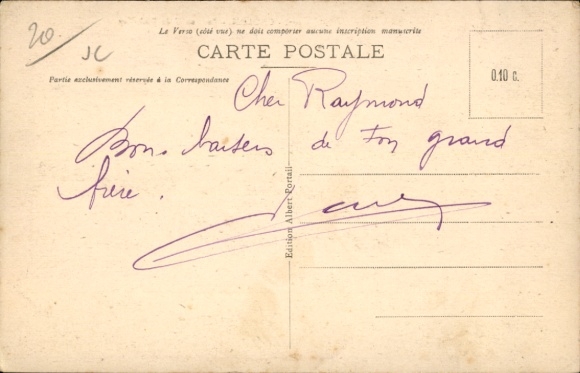 20
JC
Le Verso (côté vue) ne doit comporter aucune inscription manuscrite
CARTE POSTALE
Partie exclusivement réservée à la Correspondance
0.10 c.
Cher Raymond
Bons baisers de ton grand
frère.
Edition Albert Portail